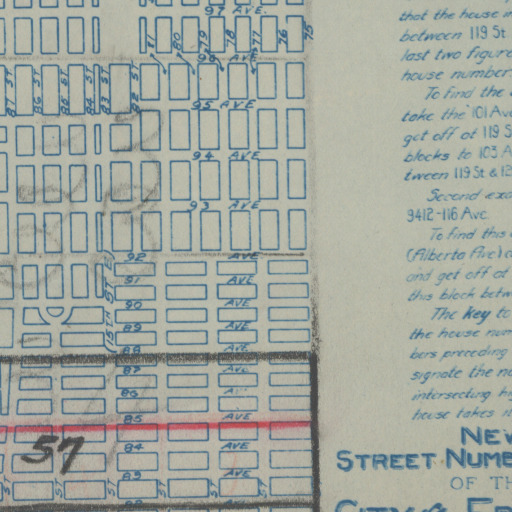 97 AVE.
81 80 79 78 77 76 75
96 AVE
87 ST 86 ST 85 ST 84 ST 83 ST 82 ST
95 AVE
94 AVE
93 AVE
92 AVE
91 AVE
90 AVE
89 AVE
88 AVE
87 AVE
86
85 AVE
84 AVE
83 AVE
57
ST ST ST ST ST
that the house in
between 119 St
last two figure
house number
To find the
take the 101 Ave
get off at 119 S
blocks to 103 A
tween 119 St & 12
Second exa
9412-116 Ave.
To find this
(Alberta Ave)
and get off at
this block betw
The key to
the house num
bers preceding
signate the no
intersecting hi
house takes it
NEW
STREET NUMBE
OF TH